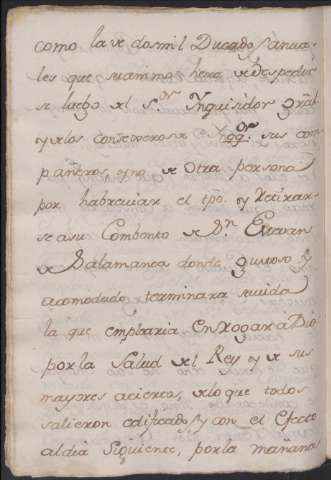 como la de dos mil Ducados anua-
les que su animo hera de despedir
se luego del S.or Ynquisidor Gral
y de los Consexeros de Ynq.on sus com
pañeros, y no de otra persona
por habreuiar el tpo. y Retirar-
se a su Combento de S.n Estevan
de Salamanca donde gustoso y
acomodado terminara su uida
la que emplearia en Rogar a Dios
por la Salud del Rey y de sus
mayores aciertos, de lo que todos
salieron edificados, y con el Efecto
al dia siguiente, por la mañana